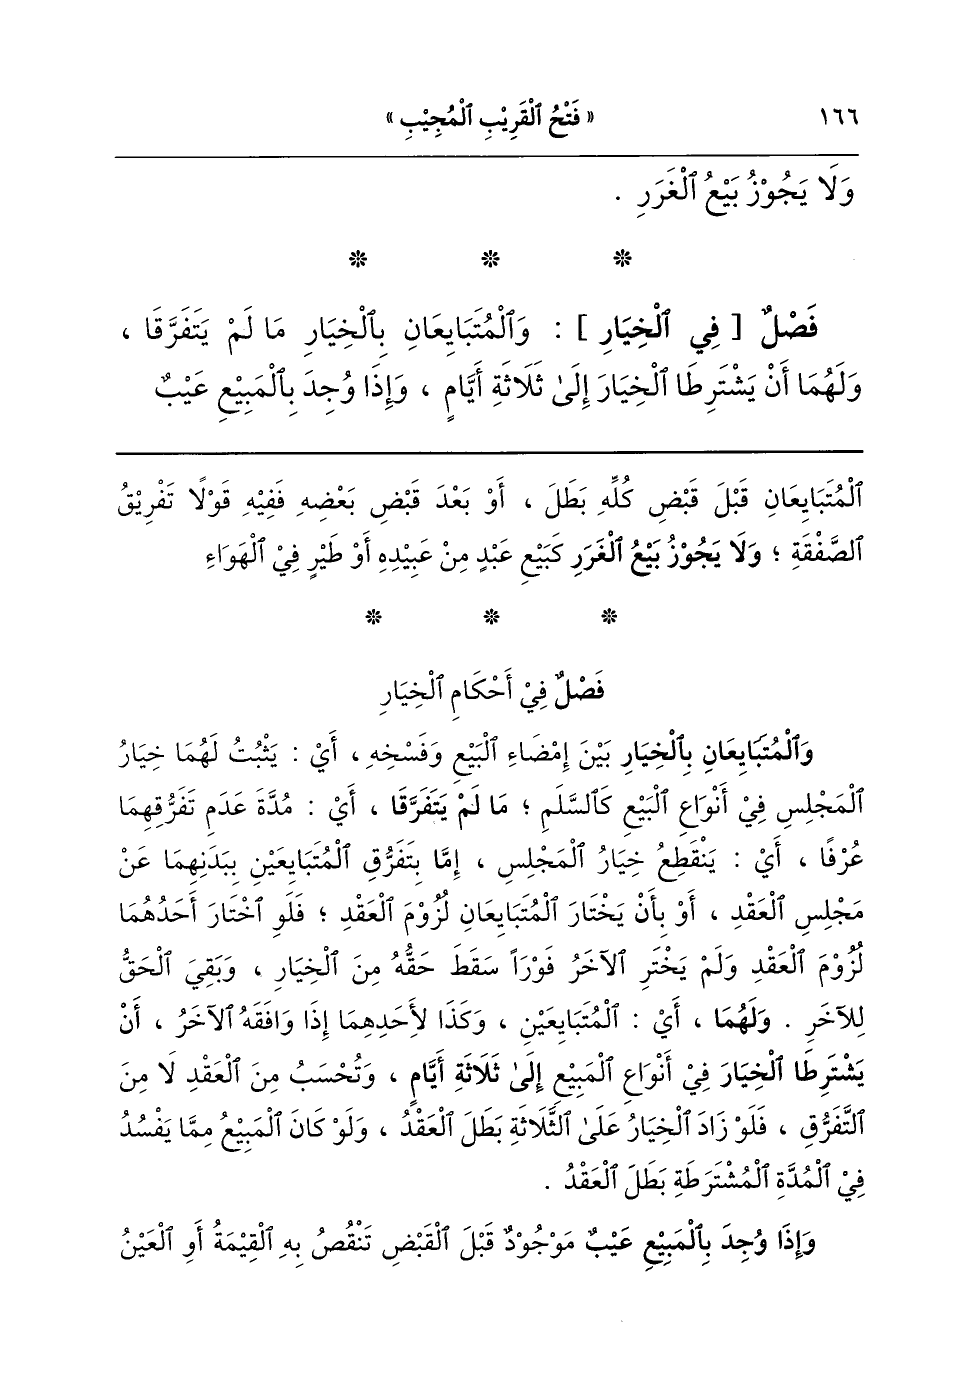 ١٦٦ « فَتْحُ ٱلْقَرِيْبِ ٱلْمُجِيْبِ »
وَلَا يَجُوْزُ بَيْعُ ٱلْغَرَرِ .
* * *
فَصْلٌ [ فِي ٱلْخِيَارِ ] : وَٱلْمُتَبَايِعَانِ بِٱلْخِيَارِ مَا لَمْ يَتَفَرَّقَا ،
وَلَهُمَا أَنْ يَشْتَرِطَا ٱلْخِيَارَ إِلَىٰ ثَلَاثَةِ أَيَّامٍ ، وَإِذَا وُجِدَ بِٱلْمَبِيْعِ عَيْبٌ
ٱلْمُتَبَايِعَانِ قَبْلَ قَبْضِ كُلِّهِ بَطَلَ ، أَوْ بَعْدَ قَبْضِ بَعْضِهِ فَفِيْهِ قَوْلَا تَفْرِيْقُ
ٱلصَّفْقَةِ ؛ وَلَا يَجُوْزُ بَيْعُ ٱلْغَرَرِ كَبَيْعِ عَبْدٍ مِنْ عَبِيْدِهِ أَوْ طَيْرٍ فِيْ ٱلْهَوَاءِ
* * *
فَصْلٌ فِيْ أَحْكَامِ ٱلْخِيَارِ
وَٱلْمُتَبَايِعَانِ بِٱلْخِيَارِ بَيْنَ إِمْضَاءِ ٱلْبَيْعِ وَفَسْخِهِ ، أَيْ : يَثْبُتُ لَهُمَا خِيَارُ
ٱلْمَجْلِسِ فِيْ أَنْوَاعِ ٱلْبَيْعِ كَٱلسَّلَمِ ؛ مَا لَمْ يَتَفَرَّقَا ، أَيْ : مُدَّةَ عَدَمِ تَفَرُّقِهِمَا
عُرْفًا ، أَيْ : يَنْقَطِعُ خِيَارُ ٱلْمَجْلِسِ ، إِمَّا بِتَفَرُّقِ ٱلْمُتَبَايِعَيْنِ بِبَدَنِهِمَا عَنْ
مَجْلِسِ ٱلْعَقْدِ ، أَوْ بِأَنْ يَخْتَارَ ٱلْمُتَبَايِعَانِ لُزُوْمَ ٱلْعَقْدِ ؛ فَلَوِ ٱخْتَارَ أَحَدُهُمَا
لُزُوْمَ ٱلْعَقْدِ وَلَمْ يَخْتَرِ ٱلآخَرُ فَوْرَاً سَقَطَ حَقُّهُ مِنَ ٱلْخِيَارِ ، وَبَقِيَ ٱلْحَقُّ
لِلآخَرِ . وَلَهُمَا ، أَيْ : ٱلْمُتَبَايِعَيْنِ ، وَكَذَا لأَحَدِهِمَا إِذَا وَافَقَهُ ٱلآخَرُ ، أَنْ
يَشْتَرِطَا ٱلْخِيَارَ فِيْ أَنْوَاعِ ٱلْمَبِيْعِ إِلَىٰ ثَلَاثَةِ أَيَّامٍ ، وَتُحْسَبُ مِنَ ٱلْعَقْدِ لَا مِنَ
ٱلتَّفَرُّقِ ، فَلَوْ زَادَ ٱلْخِيَارُ عَلَىٰ ٱلثَّلَاثَةِ بَطَلَ ٱلْعَقْدُ ، وَلَوْ كَانَ ٱلْمَبِيْعُ مِمَّا يَفْسُدُ
فِيْ ٱلْمُدَّةِ ٱلْمُشْتَرَطَةِ بَطَلَ ٱلْعَقْدُ .
وَإِذَا وُجِدَ بِٱلْمَبِيْعِ عَيْبٌ مَوْجُوْدٌ قَبْلَ ٱلْقَبْضِ تَنْقُصُ بِهِ ٱلْقِيْمَةُ أَوِ ٱلْعَيْنُ